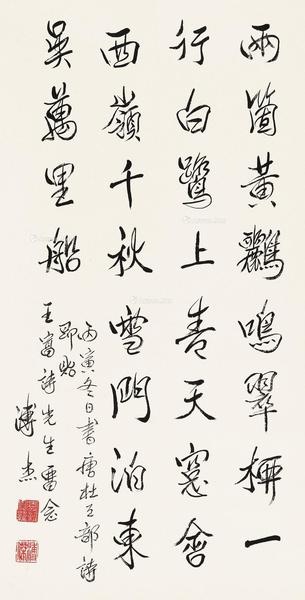 兩箇黃鸝鳴翠柳一
行白鷺上青天窓含
西嶺千秋雪門泊東
吳萬里船
丙寅冬日書唐杜工部詩
即貽
王富詩先生留念
溥杰